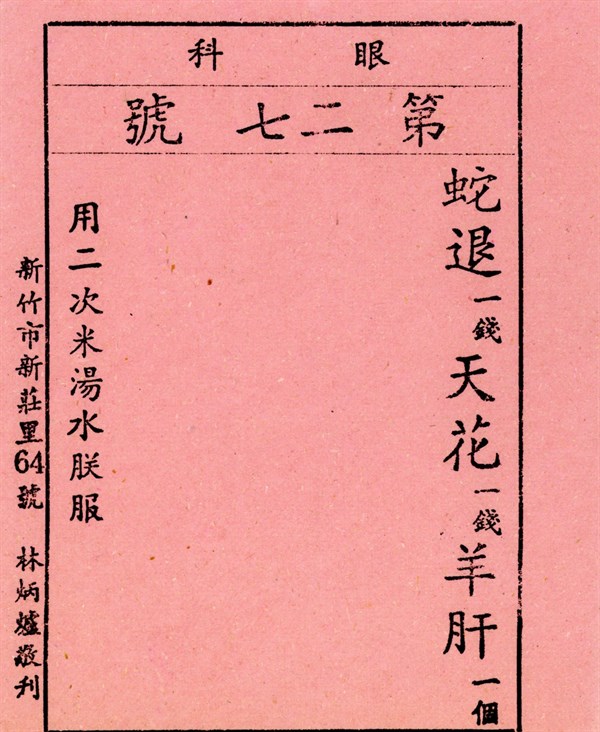 眼科
第二七號
蛇退一錢天花一錢羊肝一個
用二次米湯水朕服
新竹市新莊里64號 林炳爐敬刊